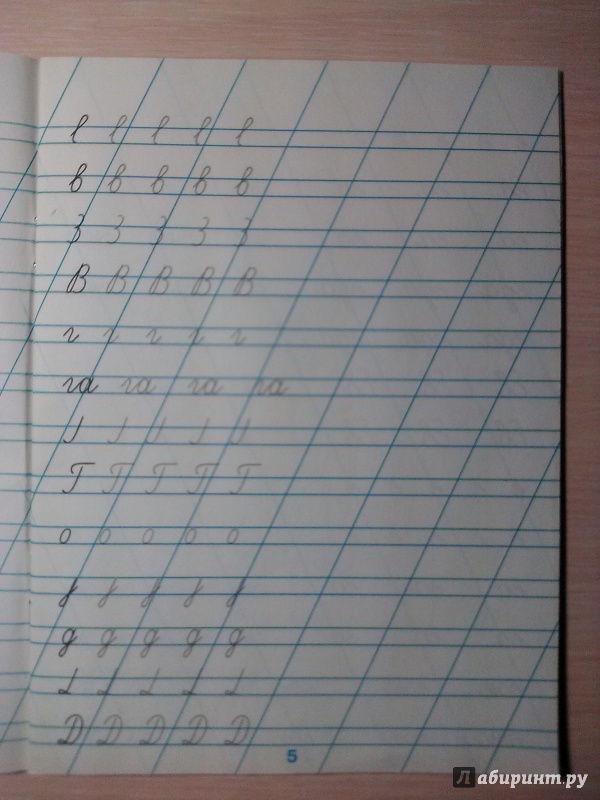 в в в в в
В В В В В
г г г г г
га га га га
Г Г Г Г Г
о о о о о
д д д д д
Д Д Д Д Д
5
Лабиринт.ру